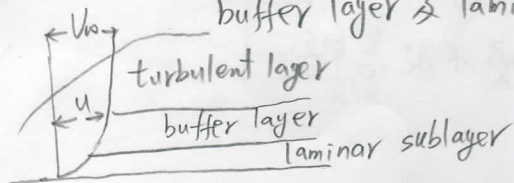 buffer layer & lami
U∞
turbulent layer
u
buffer layer
laminar sublayer